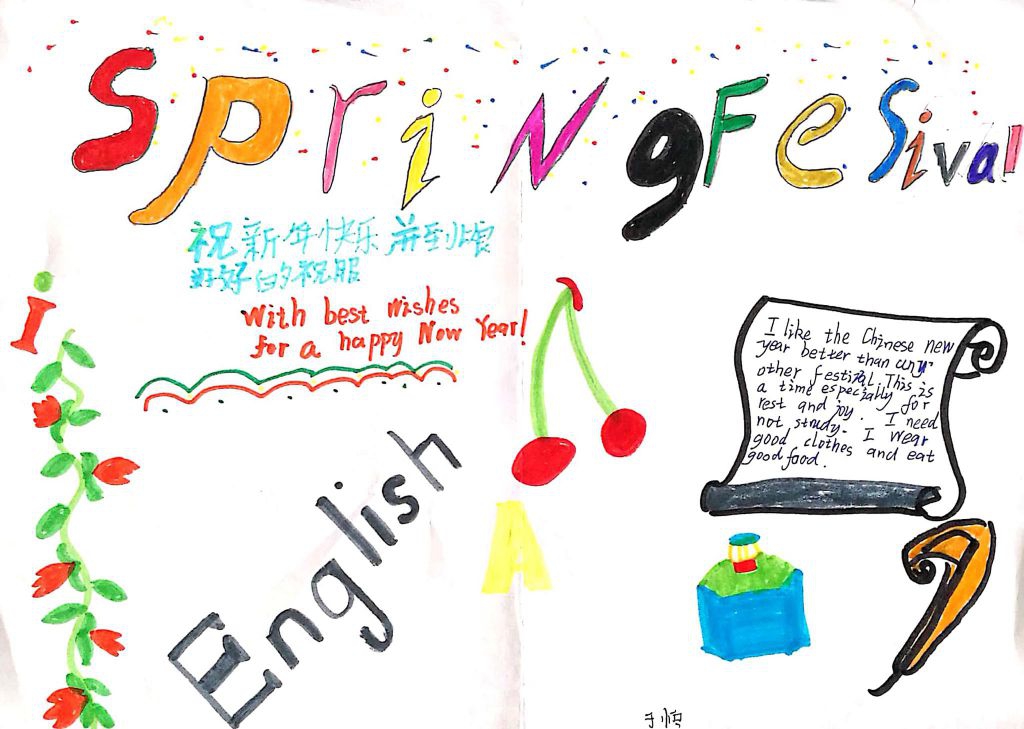 SpriNgFeSival
祝新年快乐并至以
好好的祝服
With best wishes
for a happy Now Year!
i
I like the Chinese new
year better than any
other festival. This is
a time especially for
rest and joy. I need
not study. I wear
good clothes and eat
good food.
English
A
于慎